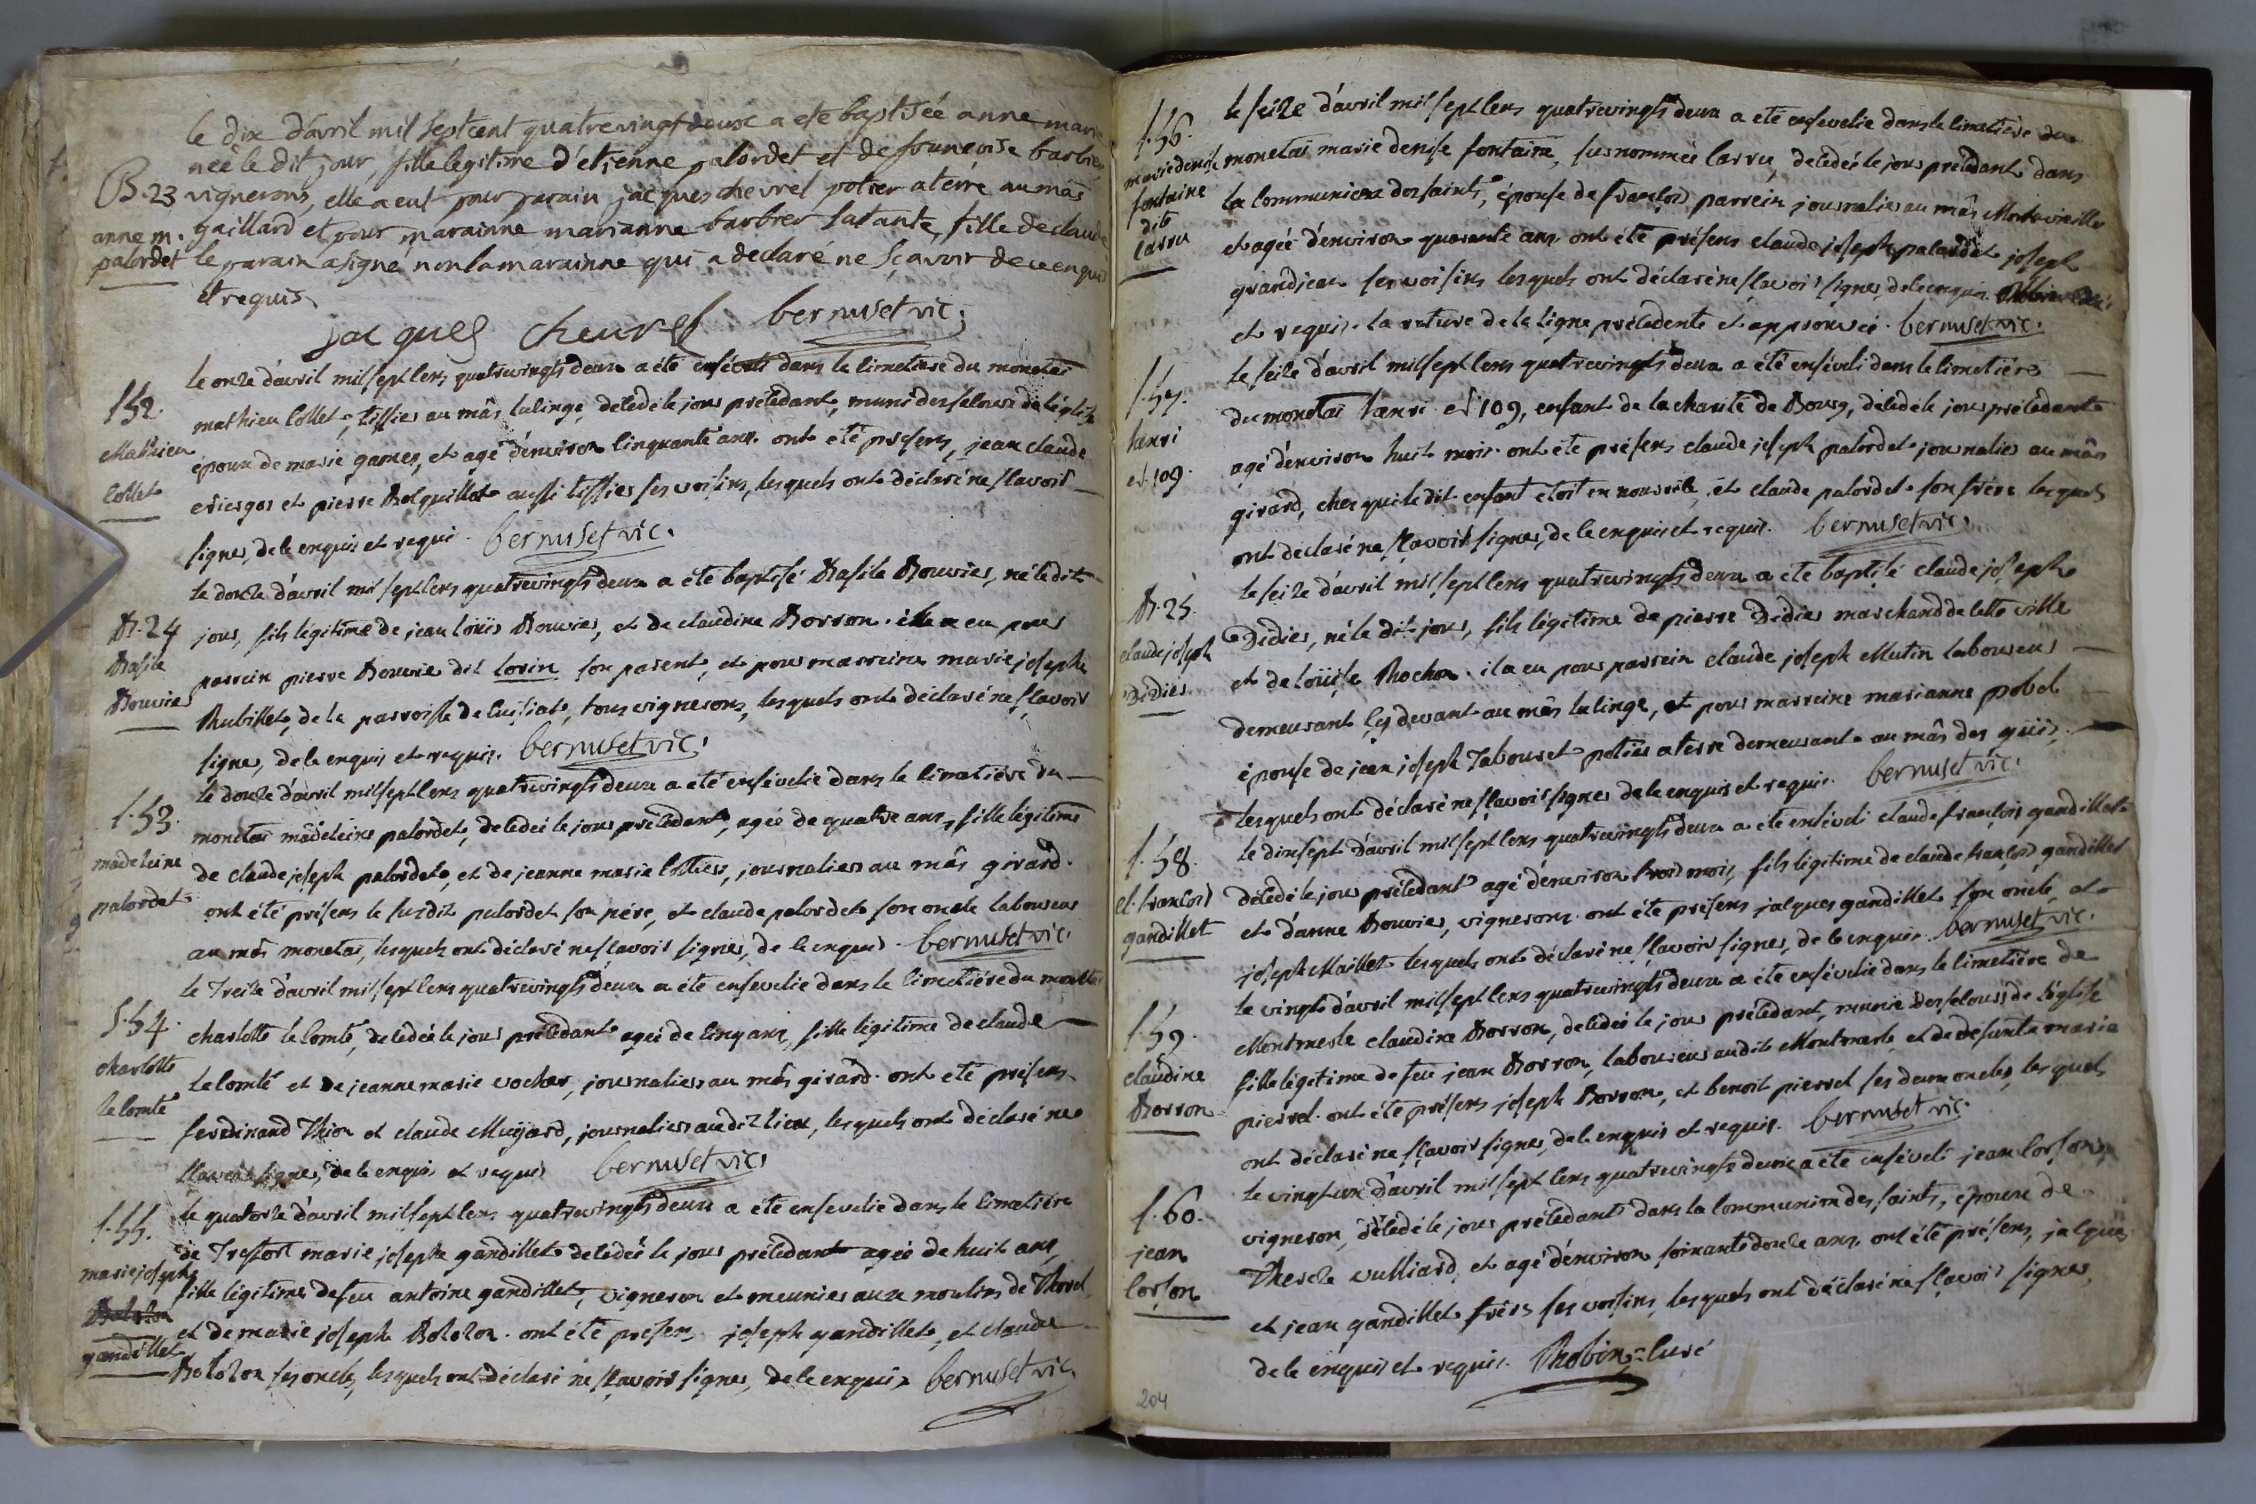 le dix d'avril mil Septcent quatrevingt deux a eté baptisée anne marie
née le dit jour, fille legitime d'etienne palordet et de francoise barbier
B. 23
vignerons, elle a eut pour parain jacques chevrel potier a terre au mâs
anne m.
gaillard et pour marainne marianne barbier sa tante, fille de claude
palordet
le parain a signé non la marainne qui a declaré ne Sçavoir de ce enquis
et requis
jacques cheuvrel bernuset vic.
le onze d'avril mil sept cens quatrevingts deux a été enséveli dans le cimetiere du monetai
S 52.
mathieu collet, tissier au mâs lalinge, décedé le jour précedant, muni des secours de l'église
Mathieu
époux de marie gamey, et agé d'environ cinquante ans. ont été présens, jean claude
collet
et pierre Bolquillot aussi tissier ses voisins, lesquels ont déclaré ne sçavoir
signer, de ce enquis et requis. bernuset vic.
le douze d'avril mil sept cens quatrevingts deux a été baptisé Basile Bouvier, né le dit
B. 24
jour, fils légitime de jean loüis Bouvier, et de claudine Borron. il a eu pour
Basile
parrein pierre Bouvie dit lorin son parent, et pour marreine marie josephe
Bouvier
Rubillet, de la parroisse de cuisiat, tous vignerons, lesquels ont déclaré ne sçavoir
signer, de ce enquis et requis. bernuset vic.
le douze d'avril mil sept cens quatrevingts deux a été ensévelie dans le cimetière du
S. 53.
monetai mâdeleine palordet, décedée le jour précedant, agée de quatre ans, fille légitime
madeleine
de claude joseph palordet, et de jeanne marie cottier, journaliers au mâs girard.
palordet
ont été présens le susdit palordet son père, et claude palordet son oncle laboureur
au mâs monetai, lesquels ont déclaré ne sçavoir signer, de ce enquis. bernuset vic.
le Treize d'avril mil sept cens quatrevingts deux a été ensevelie dans le cimetière du monetai
S. 54.
charlotte le comte, décedée le jour précedant agée de cinq ans, fille légitime de claude
charlotte
le comte et de jeanne marie vocher, journaliers au mâs girard. ont été présens
le comte
ferdinand Thion et claude Mugard, journaliers au dit lieu, lesquels ont déclaré ne
sçavoir signer, de ce enquis et requis bernuset vic.
le quatorze d'avril mil sept cens quatrevingts deux a été ensevelie dans le cimetière
S. 55.
de Treffort marie josephe gandillet décedée le jour précedant agée de huit ans,
marie josephe
fille légitime de feu antoine gandillet, vigneron et meunier aux moulins de Thorel,
gandillet
et de marie josephe Bolozon. ont été présens joseph gandillet, et claude
Bolozon ses oncles, lesquels ont déclaré ne sçavoir signer, de ce enquis bernuset vic.
le seize d'avril mil sept cens quatrevingts deux a été ensevelie dans le cimetière du
S. 56.
monetai marie denise fontaine, surnommée larru, décedée le jour précedant dans
marie denise
la communion des saints, épouse de françois parrein journalier au mâs Montevieille
fontaine
et agée d'environ quarante ans. ont été présens claude joseph palordet joseph
dite
larru
grandjean ses voisins lesquels ont déclaré ne sçavoir signer, de ce enquis
et requis. la rature de la ligne précedente et approuvée. bernuset vic.
le seize d'avril mil sept cens quatrevingts deux a été enséveli dans le cimetière
S. 57.
du monetai henri et 109, enfant de la charité de Bourg, décedé le jour précedant
henri
agé d'environ huit mois. ont été présens claude joseph palordet journalier au mâs
et 109.
girard, chez qui le dit enfant etoit en nourrice, et claude palordet son frère lesquels
ont déclaré ne sçavoir signer, de ce enquis et requis. bernuset vic.
le seize d'avril mil sept cens quatrevingts deux a été baptisé claude joseph
B. 25.
Didier, né le dit jour, fils légitime de pierre Didier marchand de cette ville
claude joseph
et de loüise Rochon. il a eu pour parrein claude joseph Mutin laboureur
Didier
demeurant cy devant au mâs lalinge, et pour marreine marianne pobel
épouse de jean joseph Tabouret potier a terre demeurant au mâs des guis,
lesquels ont déclaré ne sçavoir signer de ce enquis et requis. bernuset vic.
le dixsept d'avril mil sept cens quatrevingts deux a été enséveli claude françois gandillet
S. 58.
décedé le jour précedant agé d'environ trois mois, fils légitime de claude françois gandillet
cl. françois
et d'anne Bouvier, vignerons. ont été présens jacques gandillet son oncle, et
gandillet
joseph Maillet lesquels ont déclaré ne sçavoir signer, de ce enquis. bernuset vic.
le vingt d'avril mil sept cens quatrevingts deux a été ensévelie dans le cimetière de
S. 59.
Montmerle claudine Borron, décedée le jour précedant, munie des secours de l'église
claudine
fille légitime de feu jean Borron, laboureur au dit Montmerle et de défunte marie
Borron
pierrel. ont été présens joseph Borron, et benoit pierrel ses deux oncles, lesquels
ont déclaré ne sçavoir signer, de ce enquis et requis. bernuset vic.
le vingt un d'avril mil sept cens quatrevingts deux a été enséveli jean corson,
S. 60.
vigneron, décedé le jour précedant dans la communion des saints, époux de
jean
Thereze vulliard, et agé d'environ soixante douze ans. ont été présens, jacques
corson
et jean gandillet frères ses voisins, lesquels ont déclaré ne sçavoir signer,
de ce enquis et requis. Robin curé
204